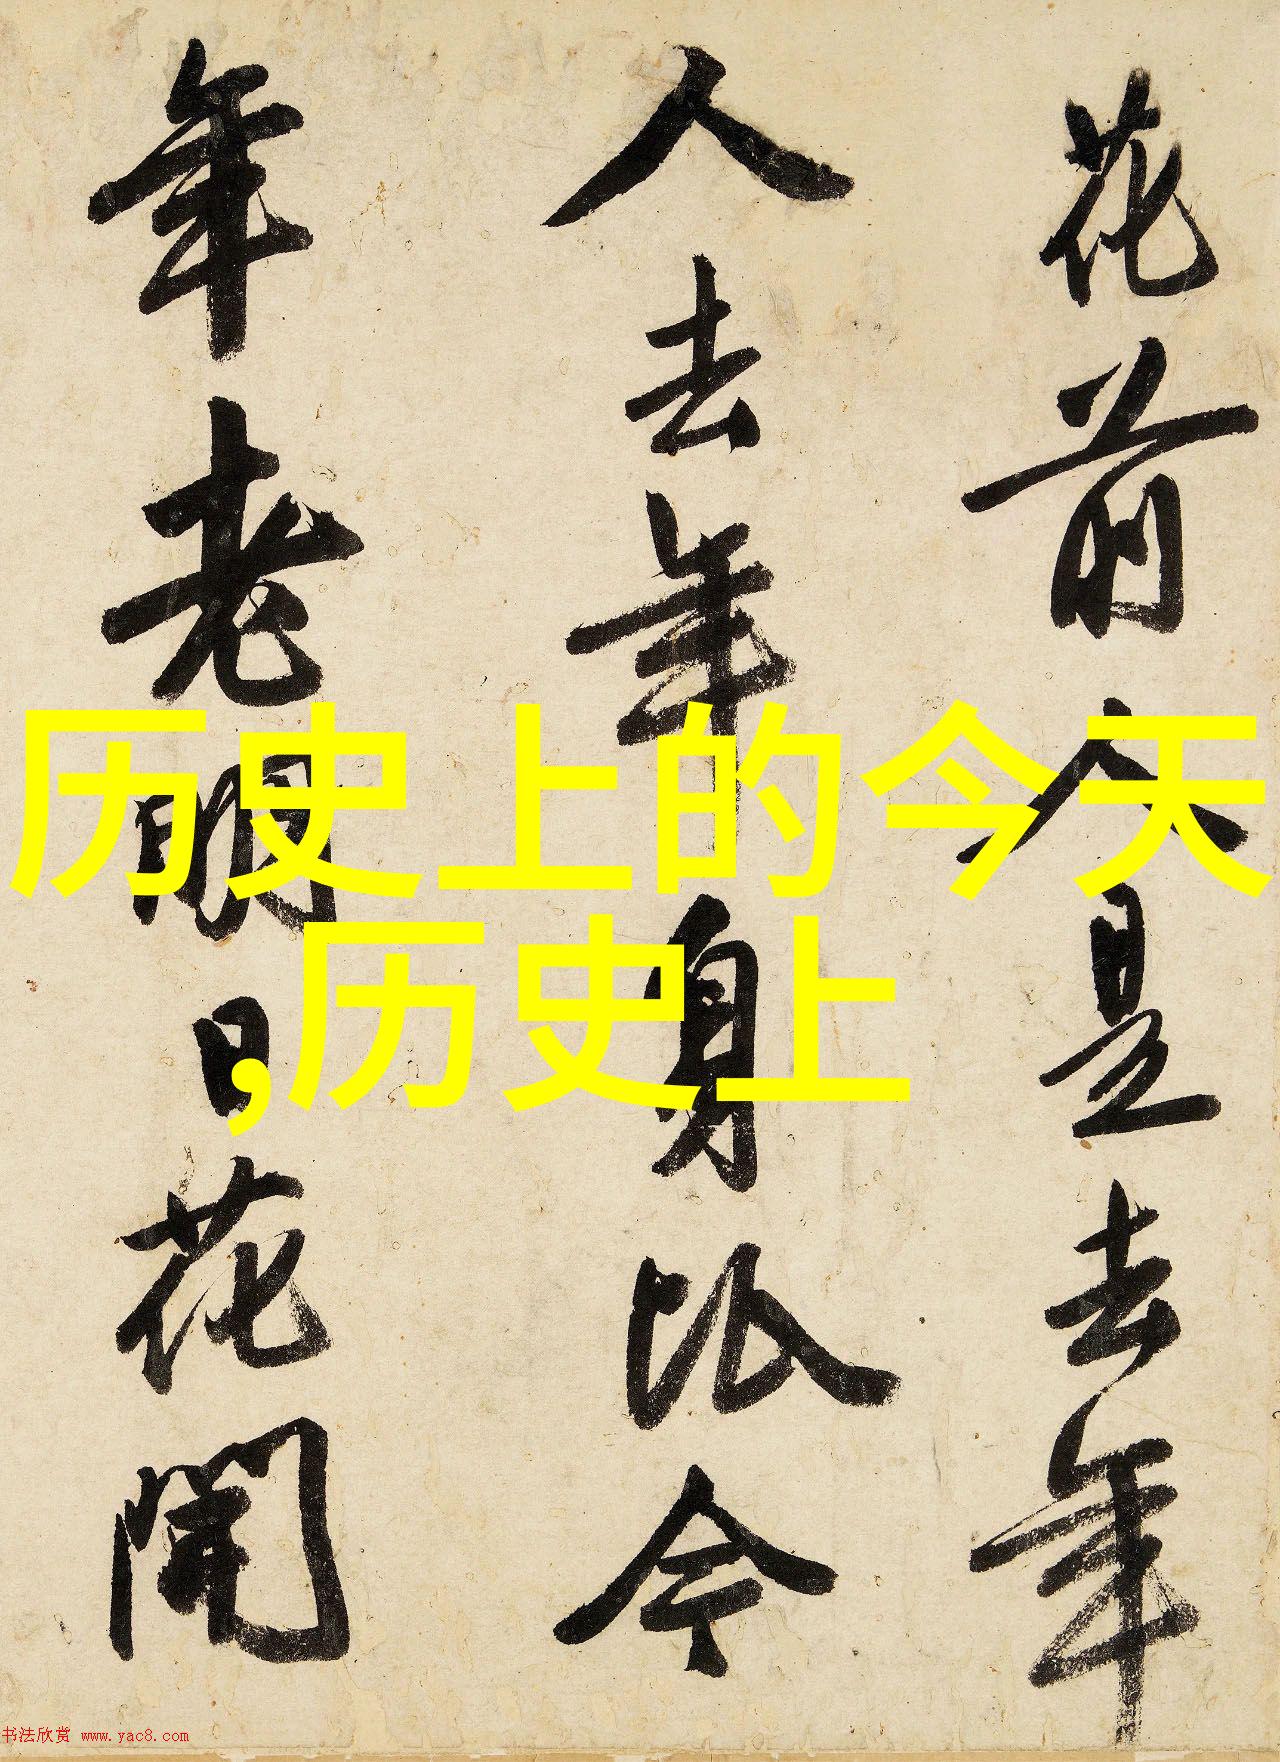 花前人是去年
人去年身比今
年老明日花開
历史上的今天
,历史上
书法欣赏 www.yac8.com